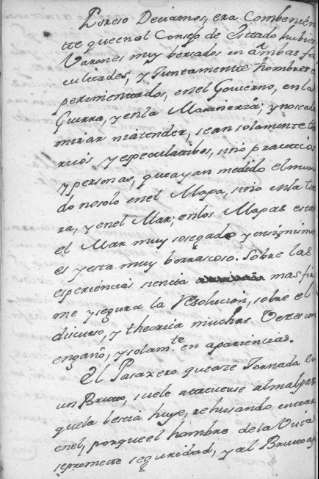 Por eso Deciamos, era Combenien
te que en el Consejo de Estado hubiese
Varones muy versados en ambas fa
cultades, y Juntamente hombres es
perimentados, en el Govierno, en la
Guerra, y en la Marineria; y no se ad
miran ni atender, sean solamente teo
ricos y especulativos, sino practicos
y personas, que ayan medido el mun
do no solo en el Mapa, sino en la tie
rra, y en el Mar; en los Mapas esta
el Mar muy sosegado y en si mismo
es y esta muy borrascoso. Sobre las
esperiencias siencia mas fir
me y segura la Resolucion, sobre el
discurso, y theoria muchas Veces con
engaño, y solamte. en apariencias.
El Pasaxero que ase Jornada en
un Bruto, suele
que la bestia huye, rehusando entrar
en el, porque el hombre de la Vida
se promete seguridad, y al Bruto